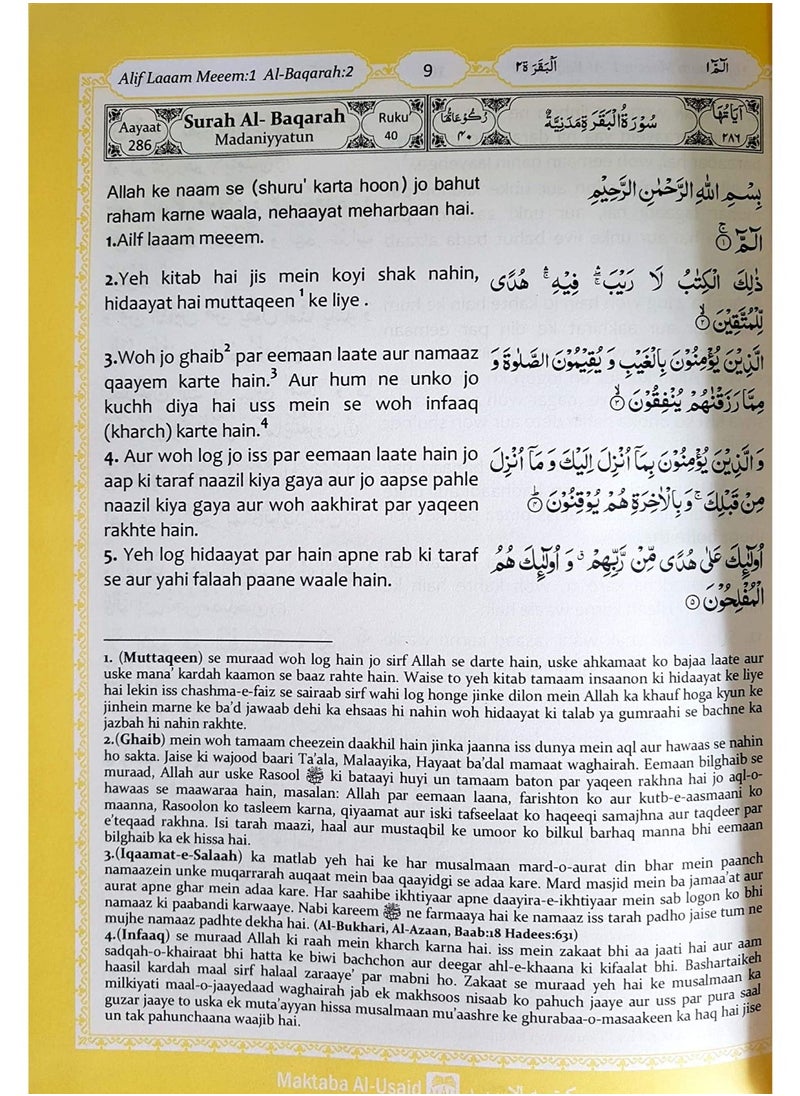 Alif Laaam Meeem:1 Al-Baqarah:2
9
اَلْبَقَرَة ٢
الٓمّٓ ١
Aayaat
286
Surah Al- Baqarah
Madaniyyatun
Ruku
40
رُكُوْعَاتُهَا
٤٠
سُوْرَةُ الْبَقَرَةِ مَدَنِيَّةٌ
اٰيَاتُهَا
٢٨٦
Allah ke naam se (shuru' karta hoon) jo bahut
raham karne waala, nehaayat meharbaan hai.
بِسْمِ اللهِ الرَّحْمٰنِ الرَّحِيْمِ
1.Ailf laaam meeem.
الٓمّٓ ۚ ۝١
2.Yeh kitab hai jis mein koyi shak nahin,
hidaayat hai muttaqeen 1 ke liye .
ذٰلِكَ الْكِتٰبُ لَا رَيْبَ ۛ فِيْهِ ۛ هُدًى
لِّلْمُتَّقِيْنَ ۙ ۝٢
3.Woh jo ghaib2 par eemaan laate aur namaaz
qaayem karte hain.3 Aur hum ne unko jo
kuchh diya hai uss mein se woh infaaq
(kharch) karte hain.4
الَّذِيْنَ يُؤْمِنُوْنَ بِالْغَيْبِ وَ يُقِيْمُوْنَ الصَّلٰوةَ وَ
مِمَّا رَزَقْنٰهُمْ يُنْفِقُوْنَ ۙ ۝٣
4. Aur woh log jo iss par eemaan laate hain jo
aap ki taraf naazil kiya gaya aur jo aapse pahle
naazil kiya gaya aur woh aakhirat par yaqeen
rakhte hain.
وَ الَّذِيْنَ يُؤْمِنُوْنَ بِمَاۤ اُنْزِلَ اِلَيْكَ وَ مَاۤ اُنْزِلَ
مِنْ قَبْلِكَ ۚ وَ بِالْاٰخِرَةِ هُمْ يُوْقِنُوْنَ ؕ ۝٤
5. Yeh log hidaayat par hain apne rab ki taraf
se aur yahi falaah paane waale hain.
اُولٰٓئِكَ عَلٰى هُدًى مِّنْ رَّبِّهِمْ ۗ وَ اُولٰٓئِكَ هُمُ
الْمُفْلِحُوْنَ ۝٥
1. (Muttaqeen) se muraad woh log hain jo sirf Allah se darte hain, uske ahkamaat ko bajaa laate aur
uske mana' kardah kaamon se baaz rahte hain. Waise to yeh kitab tamaam insaanon ki hidaayat ke liye
hai lekin iss chashma-e-faiz se sairaab sirf wahi log honge jinke dilon mein Allah ka khauf hoga kyun ke
jinhein marne ke ba'd jawaab dehi ka ehsaas hi nahin woh hidaayat ki talab ya gumraahi se bachne ka
jazbah hi nahin rakhte.
2.(Ghaib) mein woh tamaam cheezein daakhil hain jinka jaanna iss dunya mein aql aur hawaas se nahin
ho sakta. Jaise ki wajood baari Ta'ala, Malaayika, Hayaat ba'dal mamaat waghairah. Eemaan bilghaib se
muraad, Allah aur uske Rasool ﷺ ki bataayi huyi un tamaam baton par yaqeen rakhna hai jo aql-o-
hawaas se maawaraa hain, masalan: Allah par eemaan laana, farishton ko aur kutb-e-aasmaani ko
maanna, Rasoolon ko tasleem karna, qiyaamat aur iski tafseelaat ko haqeeqi samajhna aur taqdeer par
e'teqaad rakhna. Isi tarah maazi, haal aur mustaqbil ke umoor ko bilkul barhaq manna bhi eemaan
bilghaib ka ek hissa hai.
3.(Iqaamat-e-Salaah) ka matlab yeh hai ke har musalmaan mard-o-aurat din bhar mein paanch
namaazein unke muqarrarah auqaat mein baa qaayidgi se adaa kare. Mard masjid mein ba jamaa'at aur
aurat apne ghar mein adaa kare. Har saahibe ikhtiyaar apne daayira-e-ikhtiyaar mein sab logon ko bhi
namaaz ki paabandi karwaaye. Nabi kareem ﷺ ne farmaaya hai ke namaaz iss tarah padho jaise tum ne
mujhe namaaz padhte dekha hai. (Al-Bukhari, Al-Azaan, Baab:18 Hadees:631)
4.(Infaaq) se muraad Allah ki raah mein kharch karna hai. iss mein zakaat bhi aa jaati hai aur aam
sadqah-o-khairaat bhi hatta ke biwi bachchon aur deegar ahl-e-khaana ki kifaalat bhi. Bashartaikeh
haasil kardah maal sirf halaal zaraaye' par mabni ho. Zakaat se muraad yeh hai ke musalmaan ka
milkiyati maal-o-jaayedaad waghairah jab ek makhsoos nisaab ko pahuch jaaye aur uss par pura saal
guzar jaaye to uska ek muta'ayyan hissa musalmaan mu'aashre ke ghurabaa-o-masaakeen ka haq hai jise
un tak pahunchaana waajib hai.
Maktaba Al-Usaid